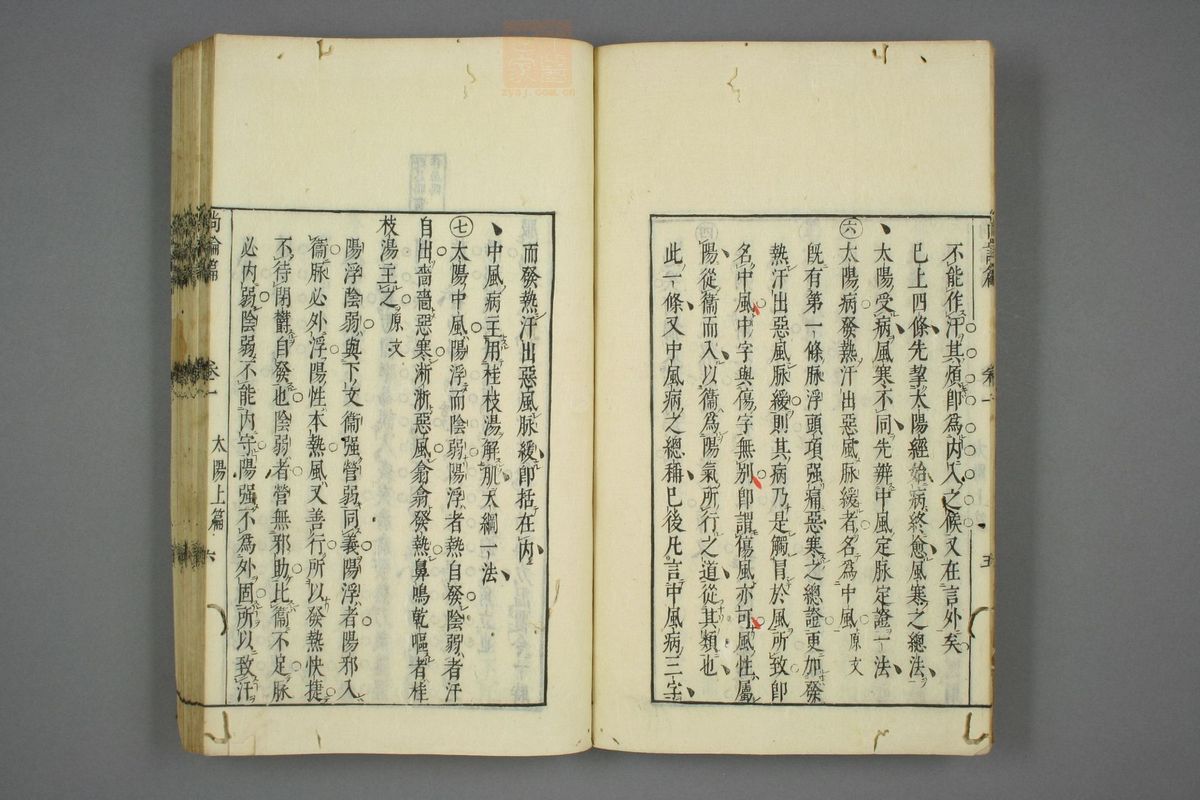 不能作汗其煩卽爲內入之候又在言外矣
已上四條先挈太陽經始病終愈風寒之總法
太陽受病風寒不同先辨中風定脉定證一法
六太陽病發熱汗出惡風脉緩者名爲中風原文
旣有第一條脉浮頭項强痛惡寒之總證更加發
熱汗出惡風脉緩則其病乃是觸冒於風所致卽
名中風中字與傷字無別卽謂傷風亦可風性屬
陽從衞而入以衞爲陽氣所行之道從其類也
此一條又中風病之總稱已後凡言中風病三字
卷一
五
而發熱汗出惡風脉緩卽括在內
中風病主用桂枝湯解肌大綱一法
七太陽中風陽浮而陰弱陽浮者熱自發陰弱者汗
自出嗇嗇惡寒淅淅惡風翕翕發熱鼻鳴乾嘔者桂
枝湯主之原文
陽浮陰弱與下文衞强營弱同義陽浮者陽邪入
衞脉必外浮陽性本熱風又善行所以發熱快捷
不待閉鬱自發也陰弱者營無邪助比衞不足脉
必內弱陰弱不能內守陽强不爲外固所以致汗
尚論篇
卷一
太陽上篇
六
zysj.com.cn